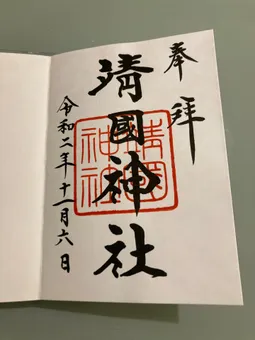 奉拝
靖國神社
靖國
神社
令和二年十一月六日